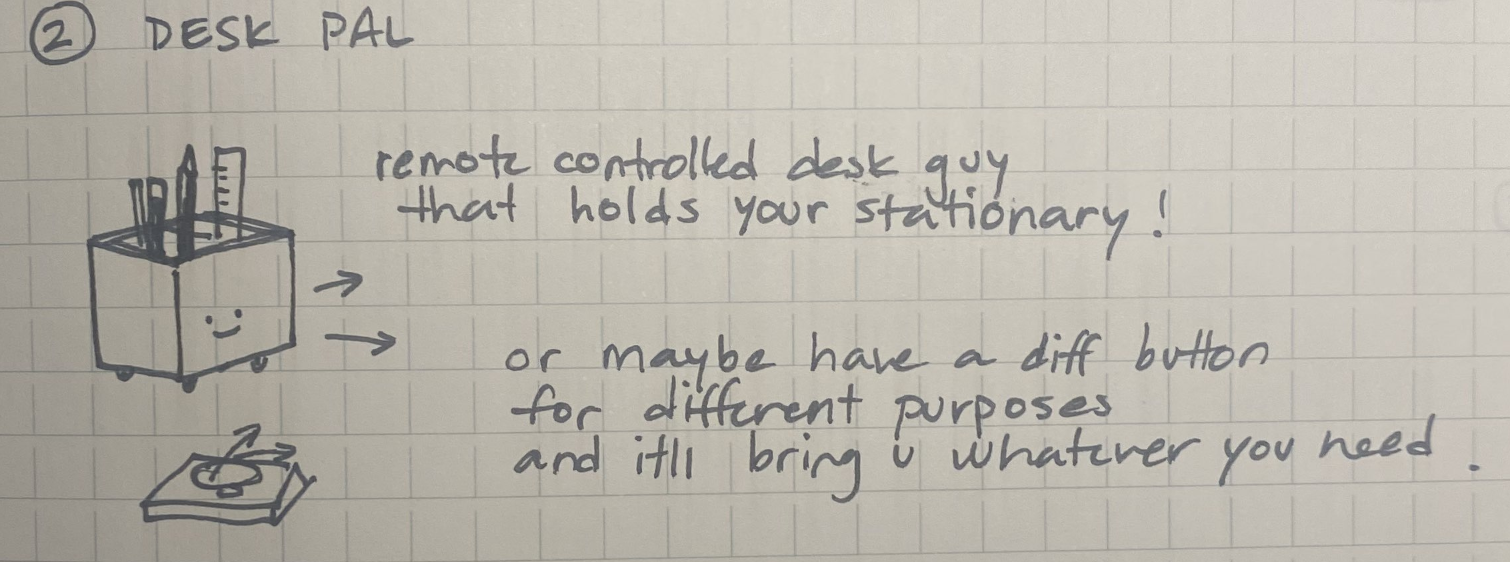 ② DESK PAL
remote controlled desk guy
that holds your stationary!
or maybe have a diff button
for different purposes
and itll bring u whatever you need.